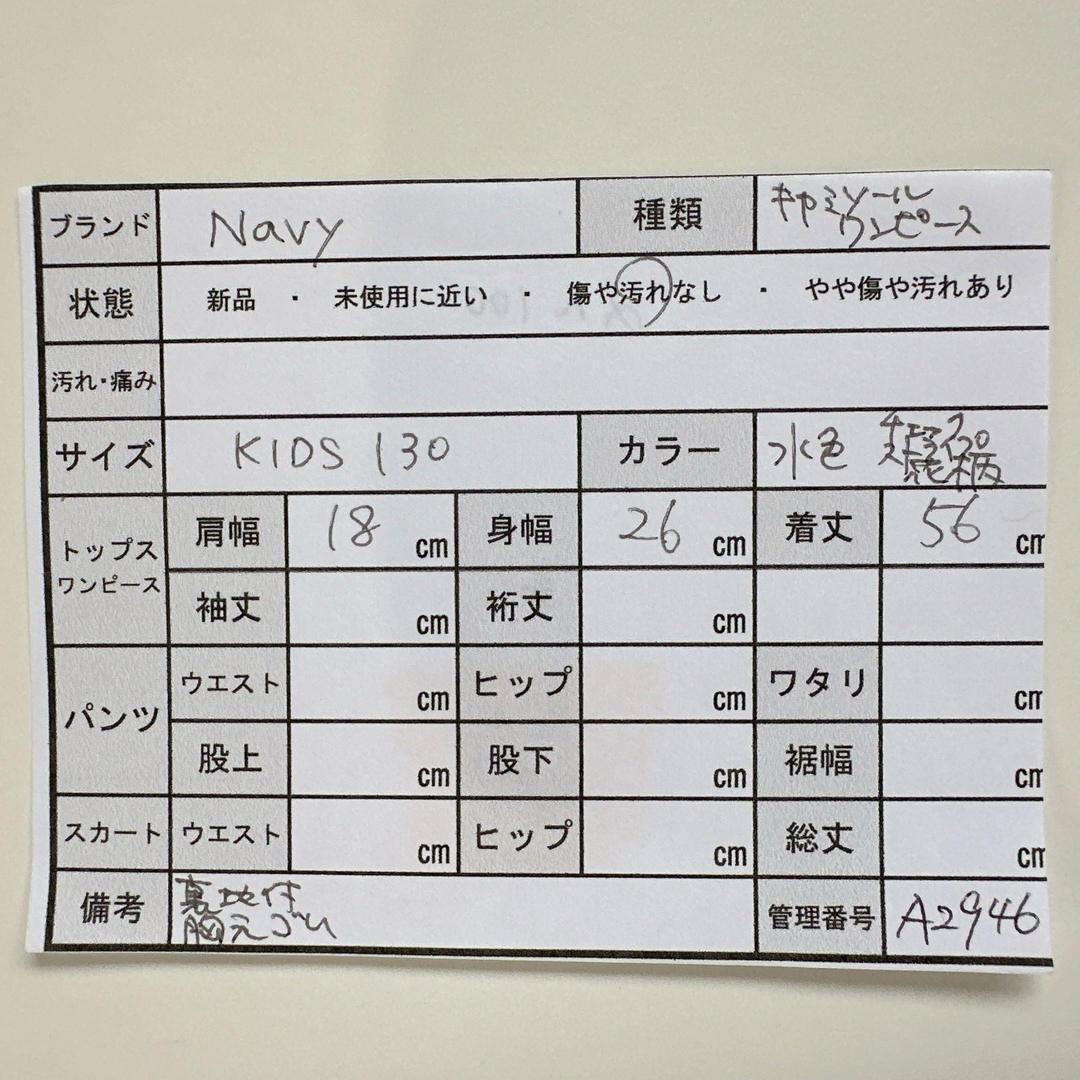 ブランド Navy 種類 キャミソール
ワンピース
状態 新品 ・ 未使用に近い ・ 傷や汚れなし ・ やや傷や汚れあり
汚れ・痛み
サイズ KIDS 130 カラー 水色
花柄
トップス
ワンピース
肩幅 18 cm 身幅 26 cm 着丈 56 cm
袖丈 cm 裄丈 cm
パンツ
ウエスト cm ヒップ cm ワタリ cm
股上 cm 股下 cm 裾幅 cm
スカート ウエスト cm ヒップ cm 総丈 cm
備考 裏地付
胸元ゴム
管理番号 A2946